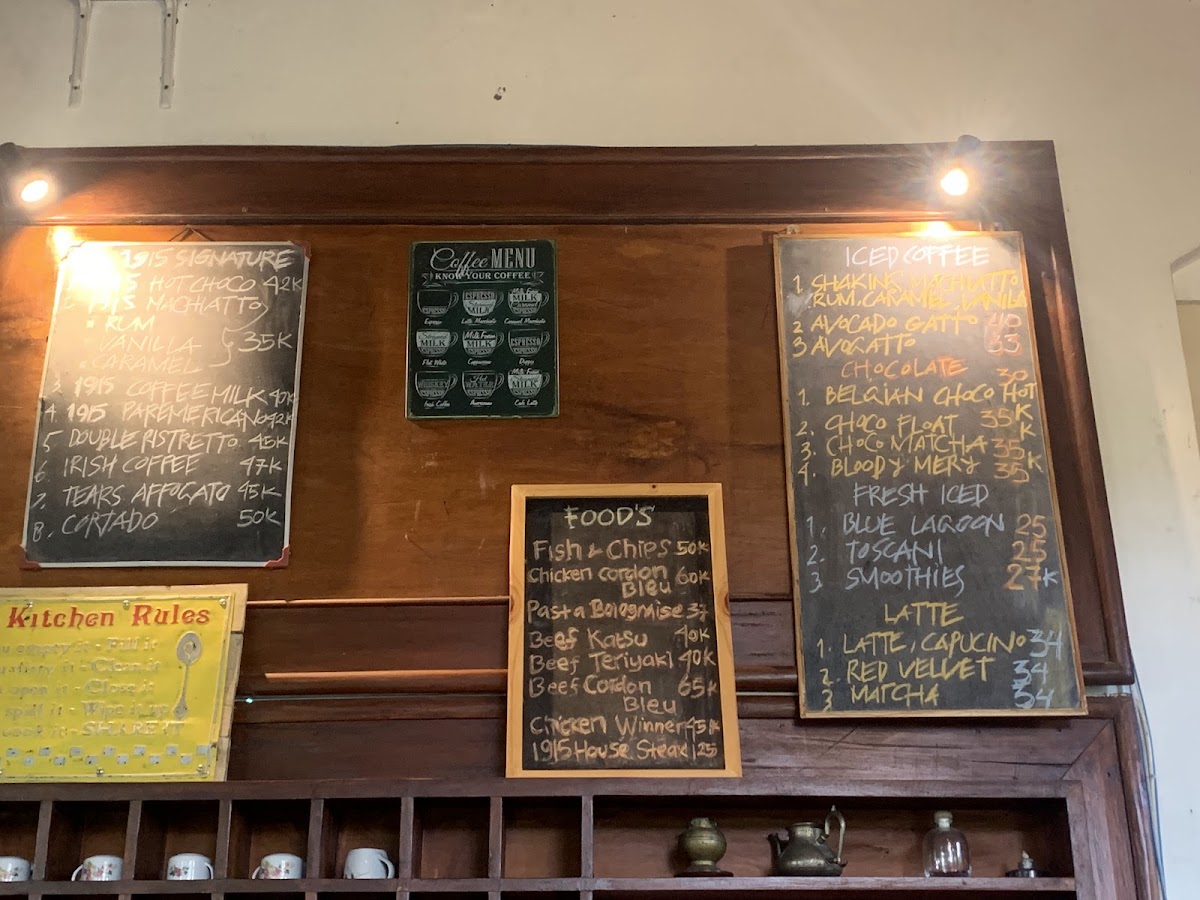 1915 SIGNATURE
HOT CHOCO 42K
1915 MACHIATTO
RUM
VANILLA } 35K
CARAMEL
3. 1915 COFFEE MILK 40K
4. 1915 PAREMERICANO 42K
5. DOUBLE RISTRETTO. 45K
6. IRISH COFFEE 47K
7. TEARS AFFOGATO 45K
8. CORTADO 50K
Coffee MENU
KNOW YOUR COFFEE
ESPRESSO
MILK
MILK
Espresso
Latte Macchiato
Caramel Macchiato
MILK
ESPRESSO
Milk Foam
MILK
ESPRESSO
ESPRESSO
Flat White
Cappuccino
Doppio
WHISKEY
ESPRESSO
Hot
WATER
ESPRESSO
Milk Foam
MILK
ESPRESSO
Irish Coffee
Americano
Cafe Latte
ICED COFFEE
1. SHAKING MACHIATTO
RUM. CARAMEL VANILA
2 AVOCADO GATTO 40
3 AVOGATTO 33
CHOCOLATE 30
1. BELGIAN CHOCO HOT
2. CHOCO FLOAT 35K
3. CHOCO MATCHA 35K
4. BLOODY MERY 35K
FRESH ICED
1. BLUE LAGOON 25
2. TOSCANI 25
3 SMOOTHIES 27K
LATTE
1. LATTE, CAPUCINO 34
2. RED VELVET 34
3. MATCHA 34
FOOD'S
Fish & Chips 50K
Chicken Cordon
Bleu 60K
Pasta Bolognise 37
Beef Katsu 40K
Beef Teriyaki 40K
Beef Cordon
Bleu 65K
Chicken Winner 45K
1915 House Steak 125
Kitchen Rules
empty it - Fill it
dirty it - Clean it
open it - Close it
spill it - Wipe it up
cook it - SHARE IT